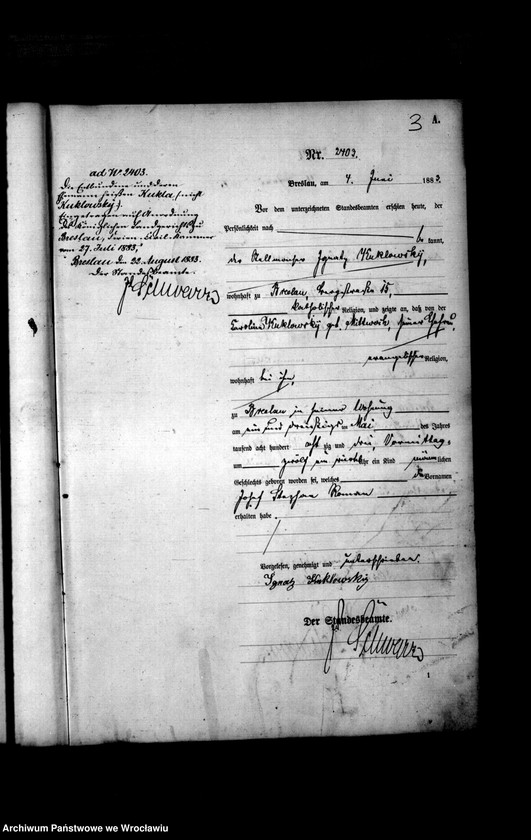 3 A.
Nr. 2403.
Breslau, am 4. Juni 1883.
Vor dem unterzeichneten Standesbeamten erschien heute, der
Persönlichkeit nach
be kannt,
der Kellmacher Ignatz Kuklowsky,
wohnhaft zu Breslau, 15,
katholischer Religion, und zeigte an, daß von der
Karoline Kuklowsky geb. Mittwoch, seiner Ehefrau,
evangelischer Religion,
wohnhaft bei ihm,
zu Breslau in seiner Wohnung
am ein und dreißigsten Mai des Jahres
tausend acht hundert acht zig und drei, Vormittags
um zwölf ein viertel Uhr ein Kind männlichen
Geschlechts geboren worden sei, welches die Vornamen
Josef Stephan Roman
erhalten habe.
Vorgelesen, genehmigt und unterschrieben.
Ignatz Kuklowsky
Der Standesbeamte.
Schwarz
ad Nr. 2403.
Die Entbundene und deren
Ehemann heißen Kukla (nicht
Kuklowsky).
Eingetragen auf Anordnung
des Königlichen Landgerichts zu
Breslau, Ferien-Civil-Kammer
vom 27. Juli 1883.
Breslau den 22. August 1883.
Der Standesbeamte.
Schwarz
Archiwum Państwowe we Wrocławiu